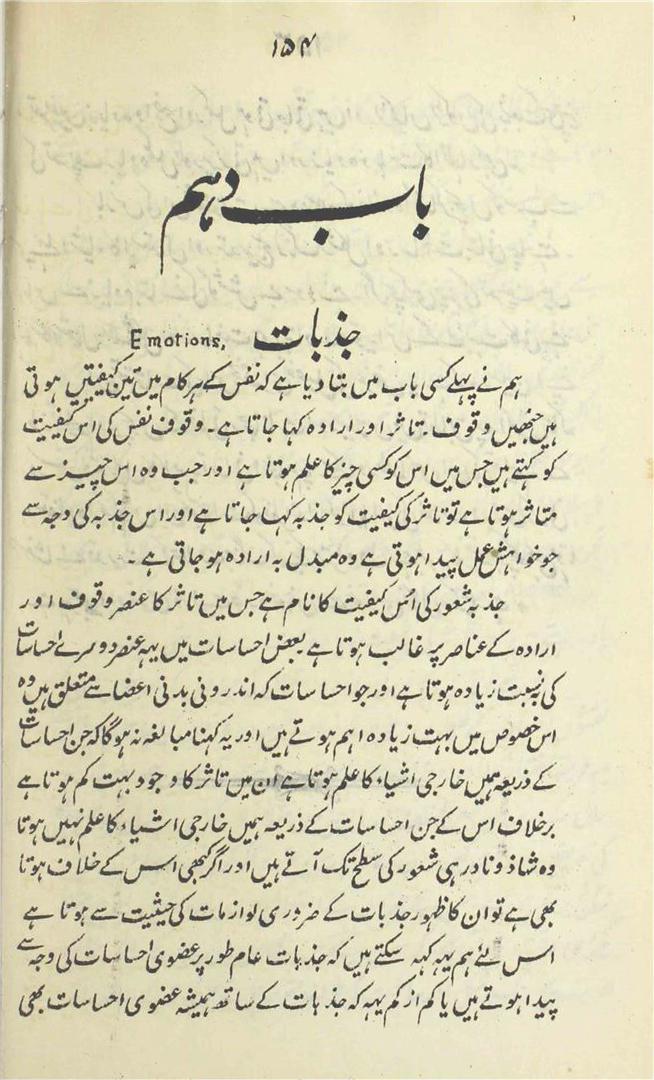 ۱۵۴
باب دہم
جذبات Emotions,
ہم نے پہلے کسی باب میں بتا دیا ہے کہ نفس کے ہر کام میں تین کیفیتیں ہوتی
ہیں جنھیں وقوف۔ تاثر اور ارادہ کہا جاتا ہے۔ وقوف نفس کی اس کیفیت
کو کہتے ہیں جس میں اس کو کسی چیز کا علم ہوتا ہے اور جب وہ اس چیز سے
متاثر ہوتا ہے تو تاثر کی کیفیت کو جذبہ کہا جاتا ہے اور اس جذبہ کی وجہ سے
جو خواہش عمل پیدا ہوتی ہے وہ مبدل بہ ارادہ ہو جاتی ہے۔
جذبہ شعور کی اُس کیفیت کا نام ہے جس میں تاثر کا عنصر وقوف اور
ارادہ کے عناصر پر غالب ہوتا ہے بعض احساسات میں یہہ عنصر دوسرے احساسات
کی نسبت زیادہ ہوتا ہے اور جو احساسات کہ اندرونی بدنی اعضا سے متعلق ہیں وہ
اس خصوص میں بہت زیادہ اہم ہوتے ہیں اور یہ کہنا مبالغہ نہ ہوگا کہ جن احساسات
کے ذریعہ ہمیں خارجی اشیاء کا علم ہوتا ہے اُن میں تاثر کا وجود بہت کم ہوتا ہے
برخلاف اس کے جن احساسات کے ذریعہ ہمیں خارجی اشیاء کا علم نہیں ہوتا
وہ شاذ و نادر ہی شعور کی سطح تک آتے ہیں اور اگر کبھی اس کے خلاف ہوتا
بھی ہے تو ان کا ظہور جذبات کے ضروری لوازمات کی حیثیت سے ہوتا ہے
اس لئے ہم یہہ کہہ سکتے ہیں کہ جذبات عام طور پر عضوی احساسات کی وجہ سے
پیدا ہوتے ہیں یا کم از کم یہہ کہ جذبات کے ساتھ ہمیشہ عضوی احساسات بھی